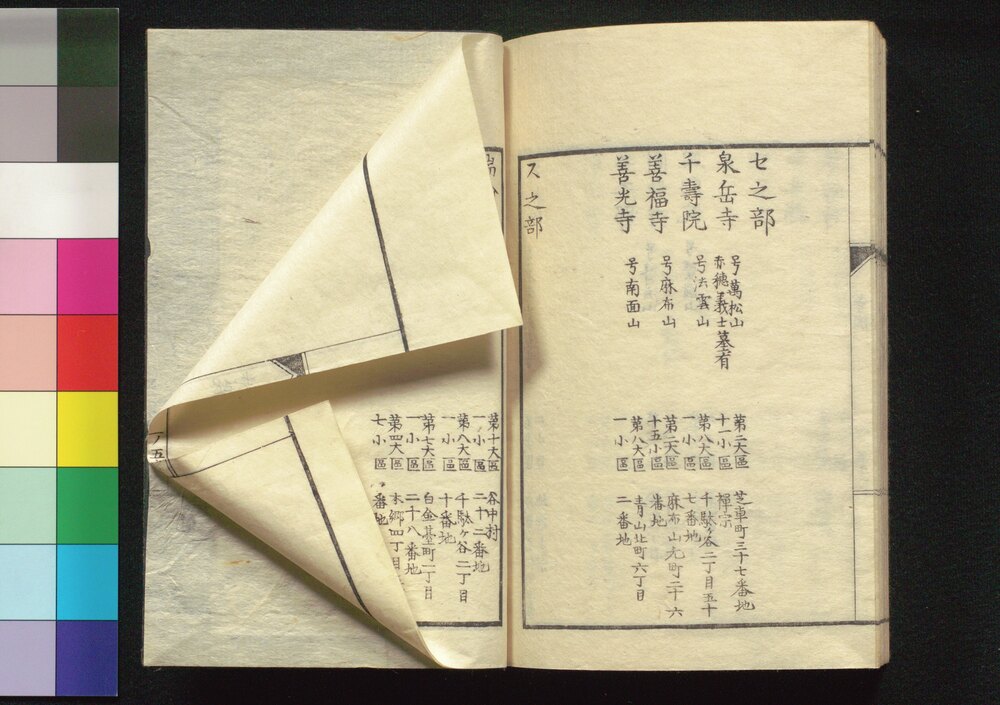 セ之部
泉岳寺
号萬松山
赤穂義士墓有
第二大區
十一小區
芝車町三十七番地
禅宗
千壽院
号法雲山
第八大區
一小區
千駄ヶ谷二丁目五十
七番地
善福寺
号麻布山
第二大區
十五小區
麻布山元町二十六
番地
善光寺
号南面山
第八大區
一小區
青山北町六丁目
二番地
ス之部
第十大區
一小區
谷中村
二十二番地
第八大區
一小區
千駄ヶ谷二丁目
十番地
第七大區
一小區
白金臺町二丁目
二十八番地
第四大區
七小區
本郷四丁目
番地
ノ五